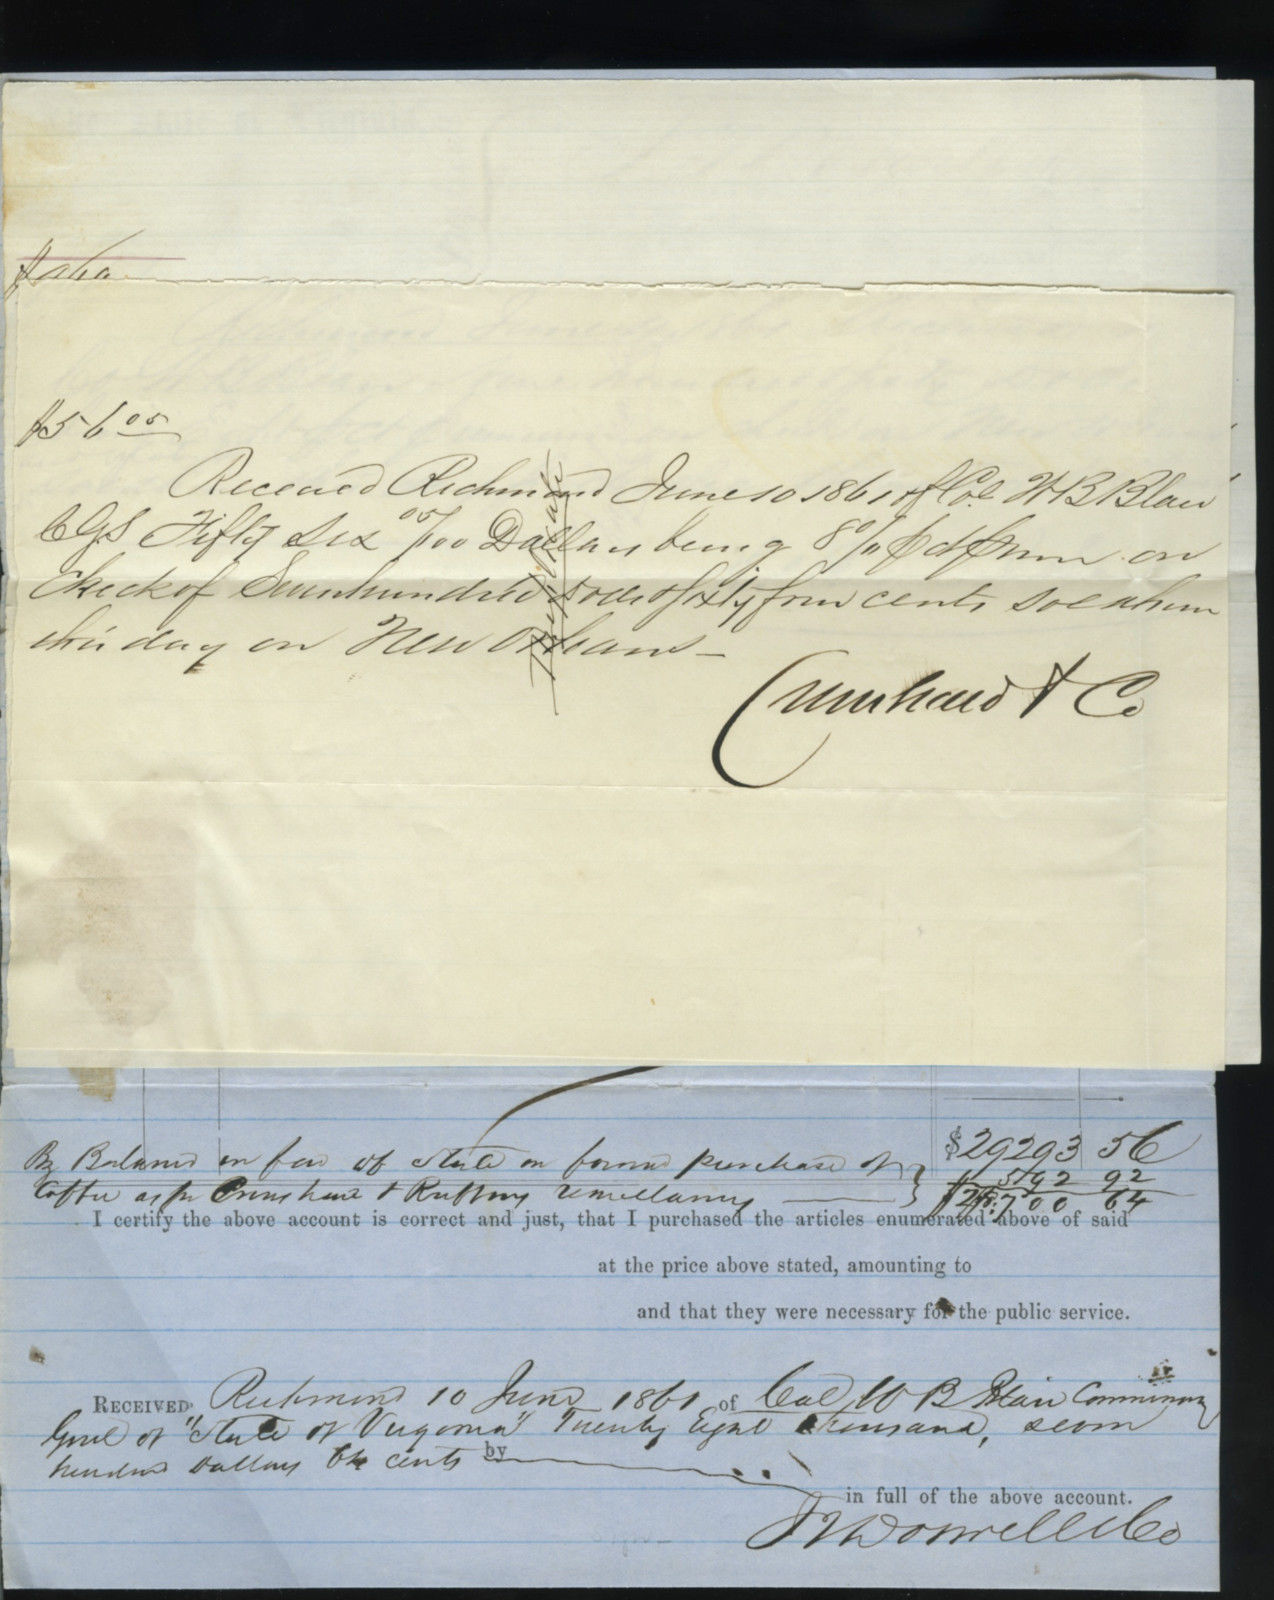 $56 05
Received Richmond June 10 1861 of Col. W B Blair
CGS Fifty Six 05/100 Dollars being 8 on
check of Seven hundred Dolls & sixty four cents
this day on New Orleans
& Co
$29293 56
By Balance in favor of State on former purchase of
Coffee as pr Crenshaw &
592 92
$28.700 64
I certify the above account is correct and just, that I purchased the articles enumerated above of said
at the price above stated, amounting to
and that they were necessary for the public service.
RECEIVED Richmond 10 June 1861 of Col W B Blair Commissary
Genl of "State of Virginia" Twenty Eight thousand, seven
hundred Dollars 64 cents by
in full of the above account.
& Co